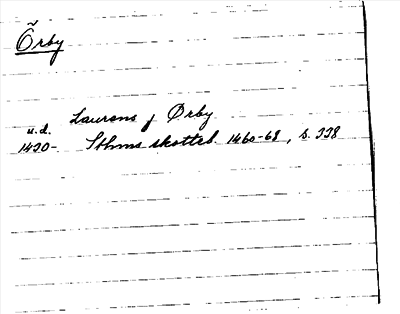 Örby
Laurens j Ørby
u.d.
1420- Sthms skotteb. 1460-68, s. 338